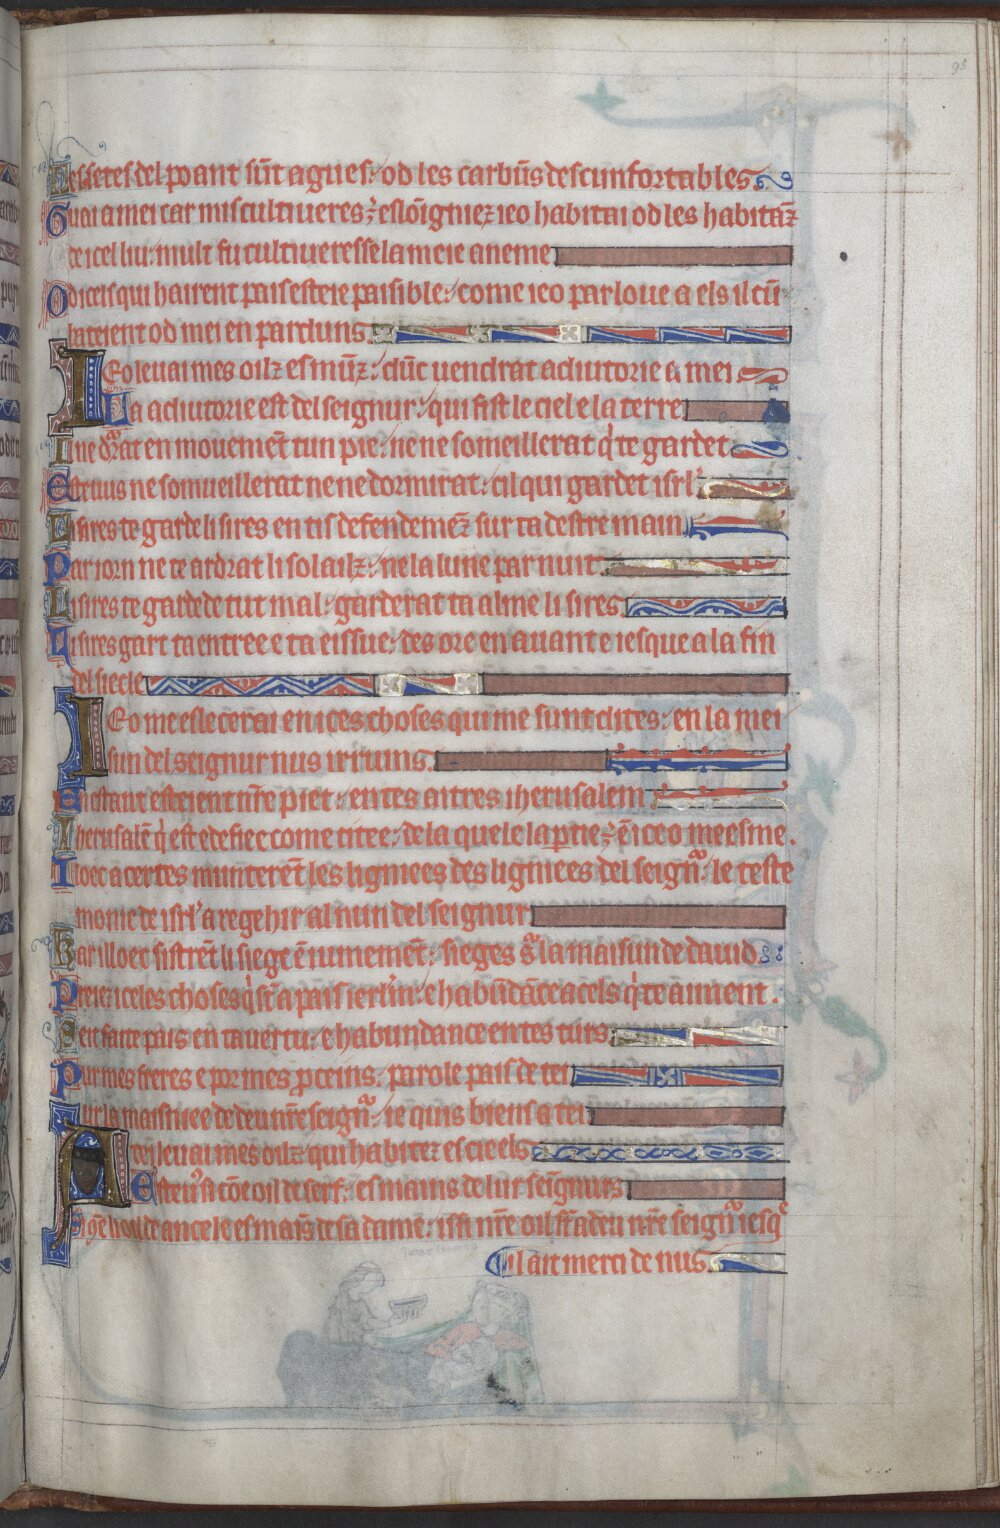 93
Les seetes del poant sūt agues: od les carbūs descunfortables
Guai a mei car mis cultiueres ē esloigniez ieo habitai od les habitāz
de icel liu: mult fu cultiueresse la meie aneme
Od iceis qui hairent pais esteie paisible: come ieo parloue a els il cū
lateient od mei en parduns
Ieo leuai mes oilz es mūz: dūc uendrat adiutorie a mei
La adiutorie est del seignur: qui fist le ciel e la terre
Il ne dorat en mouemēt tun pie: ne ne someillerat q te gardet
Esteuus ne somueillerat ne ne dormirat: cil qui gardet isrl
Li sires te garde li sires en tis defendemēz sur ta destre main
Par iorn ne te ardrat li solailz: ne la lune par nuit
Li sires te garde de tut mal: garderat ta alme li sires
Li sires gart ta entree e ta eissue: des ore en auant e iesque a la fin
del siecle
Ieo me esleecerai en ices choses qui me sunt dites: en la mei
sun del seignur nus irrums
Enistanz esteient nr̄e piet: en tes aitres iherusalem
Iherusalē q̇ est edefiee come citee: de la quele la ptie ē en iceo meesme.
Iloec acertes munterēt les ligniees des ligniees del seign̄: le teste
monie de isrl' a regehir al nun del seignur
Kar illoec sistrēt li siege en iuiement: sieges s̄ la maisun de dauid
Preiez iceles choses q̇ sт̄ a pais ierl'm: e habūdāce a cels q̇ te aiment.
Seit faite pais en ta uertu: e habundance en tes turs
Pur mes freres e por mes pceins: parole pais de tei
Pur la maisniee de deu nr̄e seign̄: ie quis biens a tei
A tei leuai mes oilz: qui habitez es cieels
Esteus si cōe oil de serf: es mains de lur seignurs
Si cōe li oil de ancele es mains de sa dame: issi nr̄e oil sт̄ a deu nr̄e seign̄ iesq
il ait merci de nus